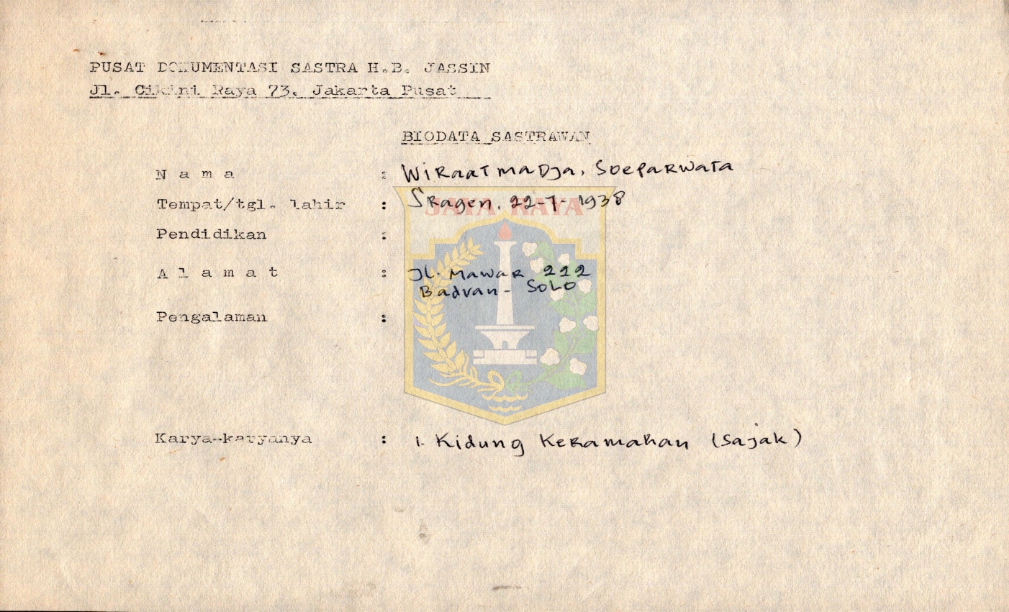 PUSAT DOKUMENTASI SASTRA H.B. JASSIN
Jl. Cikini Raya 73. Jakarta Pusat
BIODATA SASTRAWAN
N a m a : Wiraatmadja, Soeparwata
Tempat/tgl. lahir : Sragen, 22-7-1938
JAYA RAYA
Pendidikan :
A l a m a t : Jl. Mawar 222
Badran - Solo
Pengalaman :
Karya-karyanya : 1. Kidung Keramahan (Sajak)